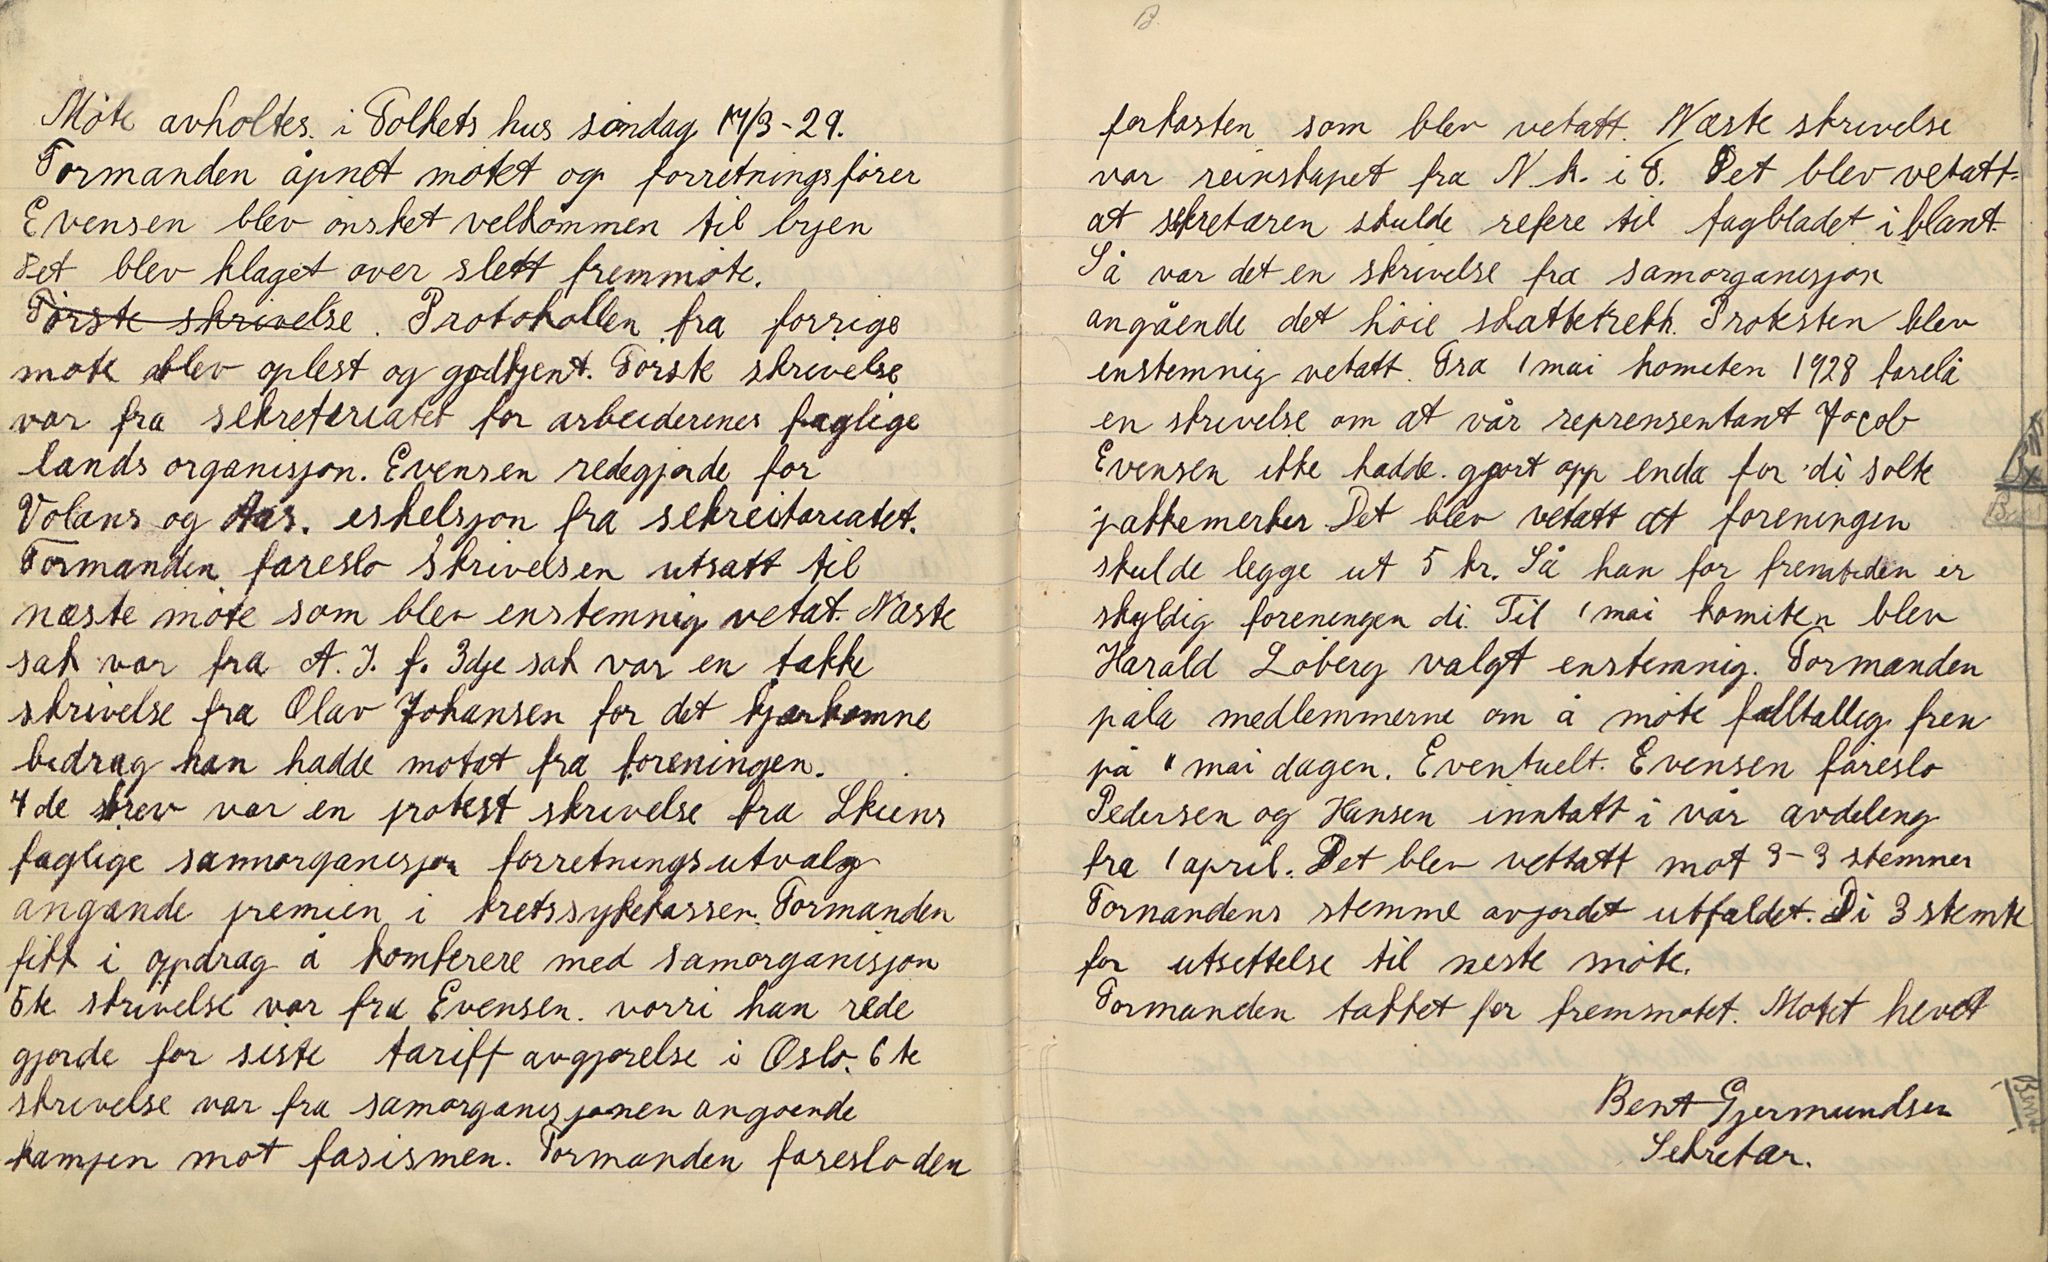 Möte avholtes. i Folkets hus söndag 17/3-29.
Formanden åpnet mötet og forretningsförer
Evensen blev önsket velkommen til byen
Det blev klaget over slett fremmöte.
Förste skrivelse. Protokollen fra forrige
möte blev oplest og godkjent. Förste skrivelse
var fra sekretariatet for arbeiderenes faglige
lands organisjon. Evensen redegjorde for
Volans og Aas. eskelsjon fra sekreitariatet.
Formanden foreslo skrivelsen utsatt til
næste möte som blev enstemnig vetat. Næste
sak var fra A. J. f. 3dje sak var en takke
skrivelse fra Olav Johansen for det kjærkomne
bidrag han hadde motat fra foreningen.
4de skrev var en protest skrivelse fra Skiens
faglige samorganisjon forretningsutvalg
angånde premien i kretssykekassen. Formanden
fikk i oppdrag å komferere med samorganisjon
5te skrivelse var fra Evensen. vorri han rede
gjorde for siste tariff avgjörelse i Oslo. 6te
skrivelse var fra samorganisjonen angående
kampen mot fasismen. Formanden foreslo den
forkasten som blev vetatt. Næste skrivelse
var reinskapet fra N. k. i F. Det blev vetatt
at sekretæren skulde refere til fagbladet iblant.
Så var det en skrivelse fra samorganisjon
angående det höie skattetrekk. Protesten blev
enstemnig vetatt. Fra 1 mai komiten 1928 forelå
en skrivelse om at vår reprensentant Jacob
Evensen ikke hadde gjort opp enda for di solte
jakkemerker. Det blev vetatt at foreningen
skulde legge ut 5 kr. Så han for fremtiden er
skyldig foreningen di. Til 1 mai komiten blev
Harald Löberg valgt enstemnig. Formanden
påla medlemmerne om å möte falltallig frem
på 1 mai dagen. Eventuelt. Evensen foreslo
Pedersen og Hansen inntatt i vår avdeling
fra 1 april. Det blev vettatt mot 3-3 stemner
Formandens stemme avjordet utfaldet. Di 3 stemte
for utsettelse til neste möte.
Formanden takket for fremmötet. Mötet hevet
Bent Gjermundsen
Sekretær.